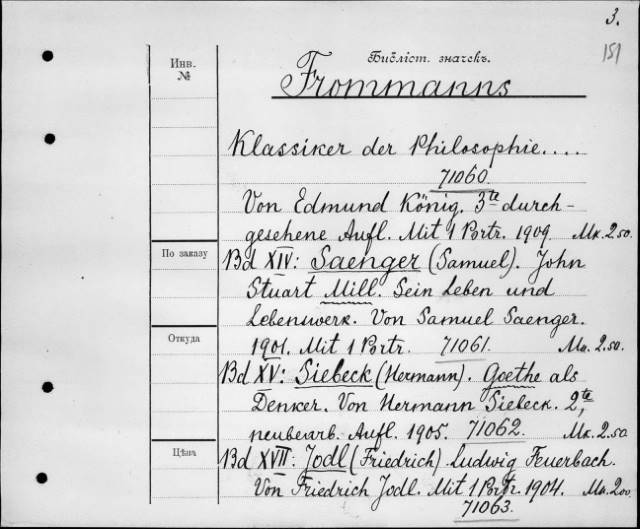 3.
151
Инв.
№
Библіот. значекъ.
Frommanns
Klassiker der Philosophie....
71060.
Von Edmund König. 3te durch-
gesehene Aufl. Mit 1 Portr. 1909. Mk. 2.50.
По заказу
Bd XIV: Saenger (Samuel). John
Stuart Mill. Sein Leben und
Lebenswerk. Von Samuel Saenger.
Откуда
1901. Mit 1 Portr. 71061. Mk. 2.50.
Bd XV: Siebeck (Hermann). Goethe als
Denker. Von Hermann Siebeck. 2te,
neubearb. Aufl. 1905. 71062. Mk. 2.50
Цѣна
Bd XVII: Jodl (Friedrich) Ludwig Feuerbach.
Von Friedrich Jodl. Mit 1 Portr. 1904. Mk. 2.00.
71063.